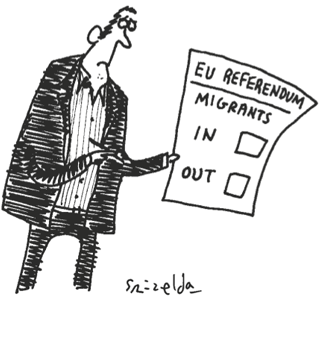 EU REFERENDUM
MIGRANTS
IN
OUT